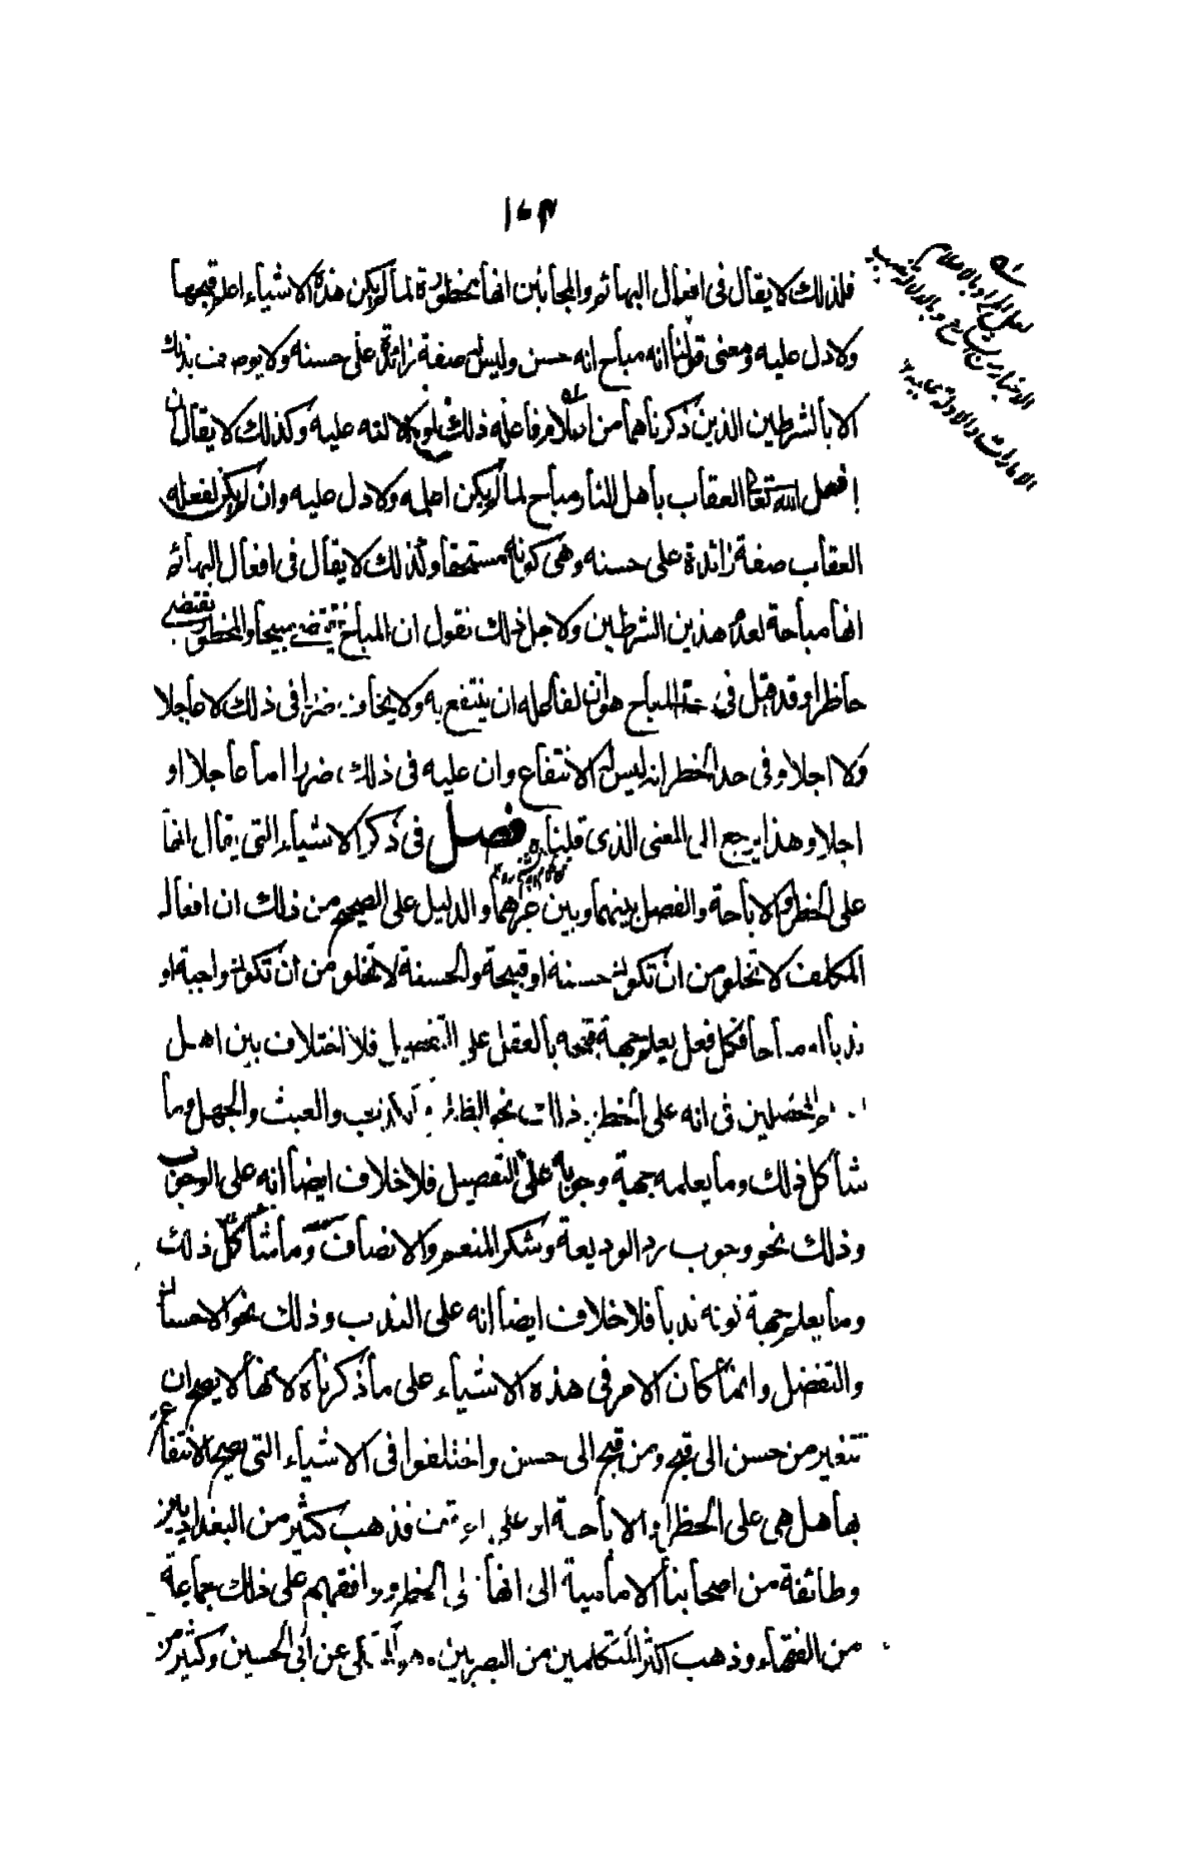 ١٠٣
فلذلك لا يقال في افعال البهائم والمجانين انها محظورة لما لم يكن هذه الاشياء اعلم قبحها
ولا دل عليه ومعنى قولنا انه مباح انه حسن وليس له صفة زائدة على حسنه ولا يوصف بذلك
الا بالشرطين الذين ذكرناهما من اعلام فاعله ذلك او دلالته عليه وكذلك لا يقال ان
فعل الله تعالى العقاب باهل النار مباح لما لم يكن اعلمه ولا دل عليه وان لم يكن لفعله
العقاب صفة زائدة على حسنه وهي كونه مستحقا وكذلك لا يقال في افعال البهائم
انها مباحة لعدم هذين الشرطين ولاجل ذلك نقول ان المباح يقتضي مبيحا والمحظور يقتضي
حاظرا وقد قيل في حد المباح هو ان لفاعله ان ينتفع به ولا يخاف ضررا في ذلك لا عاجلا
ولا اجلا وفي حد الحظر انه ليس له الانتفاع وان عليه في ذلك ضررا اما عاجلا او
اجلا وهذا يرجع الى المعنى الذي قلناه فصل في ذكر الاشياء التي يقال انها
على الحظر والاباحة والفصل بينهما وبين غيرهما والدليل على الصحيح من ذلك ان افعال
المكلف لا تخلو من ان تكون حسنة او قبيحة والحسنة لا تخلو من ان تكون واجبة او
ندبا او مباحا فكل فعل يعلم جهة قبحه بالعقل على التفصيل فلا اختلاف بين اهل
المحصلين في انه على الحظر وذلك نحو الظلم والكذب والعبث والجهل وما
شاكل ذلك وما يعلم جهة وجوبه على التفصيل فلا خلاف ايضا انه على الوجوب
وذلك نحو وجوب رد الوديعة وشكر المنعم والانصاف وما شاكل ذلك
وما يعلم جهة كونه ندبا فلا خلاف ايضا انه على الندب وذلك نحو الاحسان
والتفضل وانما كان الامر في هذه الاشياء على ما ذكرناه لانها لا يصح ان
تتغير من حسن الى قبح ومن قبح الى حسن واختلفوا في الاشياء التي يصح الانتفاع
بها هل هي على الحظر او الاباحة او على الوقف فذهب كثير من البغداديين
وطائفة من اصحابنا الامامية الى انها على الحظر ووافقهم على ذلك جماعة
من الفقهاء وذهب اكثر المتكلمين من البصريين وهي المحكي عن ابي الحسين وكثير من
لعل المراد بالاعلام
الاخبار من الشارع وبالدلالة نصب
الامارات والادلة عليه